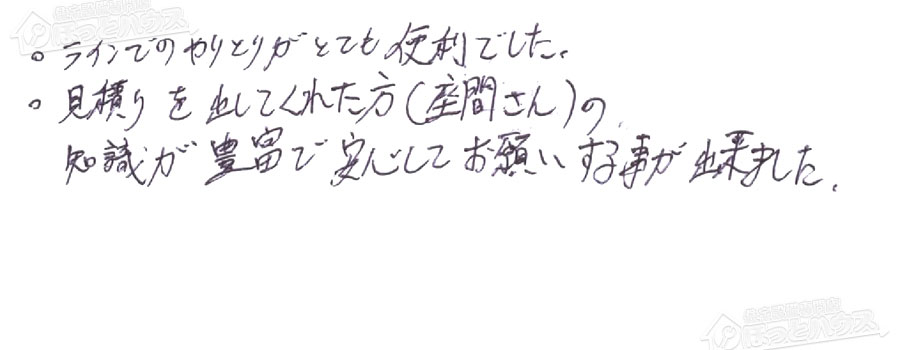 。ラインでのやりとりがとても便利でした。
。見積りを出してくれた方(座間さん)の
知識が豊富で安心してお願いする事が出来ました。
ほっとハウス